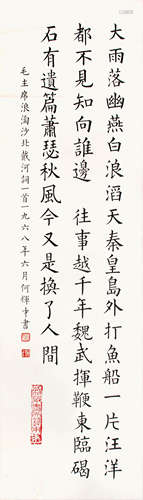 大雨落幽燕白浪滔天秦皇島外打魚船一片汪洋
都不見知向誰邊 往事越千年魏武揮鞭東臨碣
石有遺篇蕭瑟秋風今又是換了人間
毛主席浪淘沙北戴河詞一首一九六八年六月何輝章書